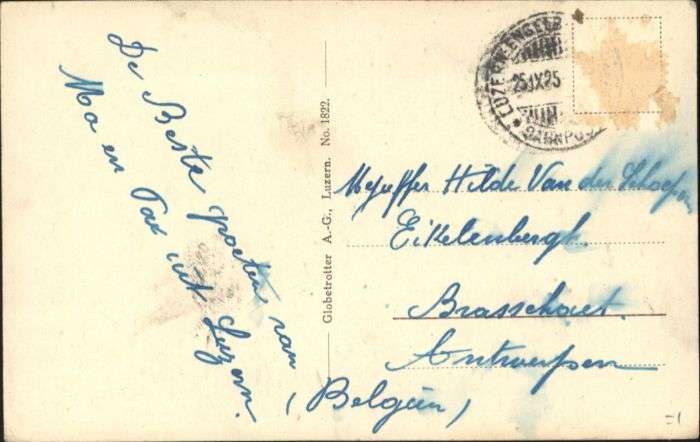 De Beste groeten van
Ma en Pa uit Luzern.
Globetrotter A.-G., Luzern. No. 1822.
LUZERN-ENGELB
25.IX.25
BAHNPOS
Mejuffer Hilde Van der
Eikelenbergh.
Brasschaet.
Antwerpen
(Belgien)